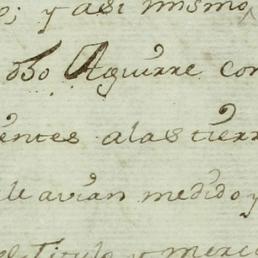 ; y asi mismo
dho Aguirre con
entes alas tierr
le avian medido y
el Titulo y merce